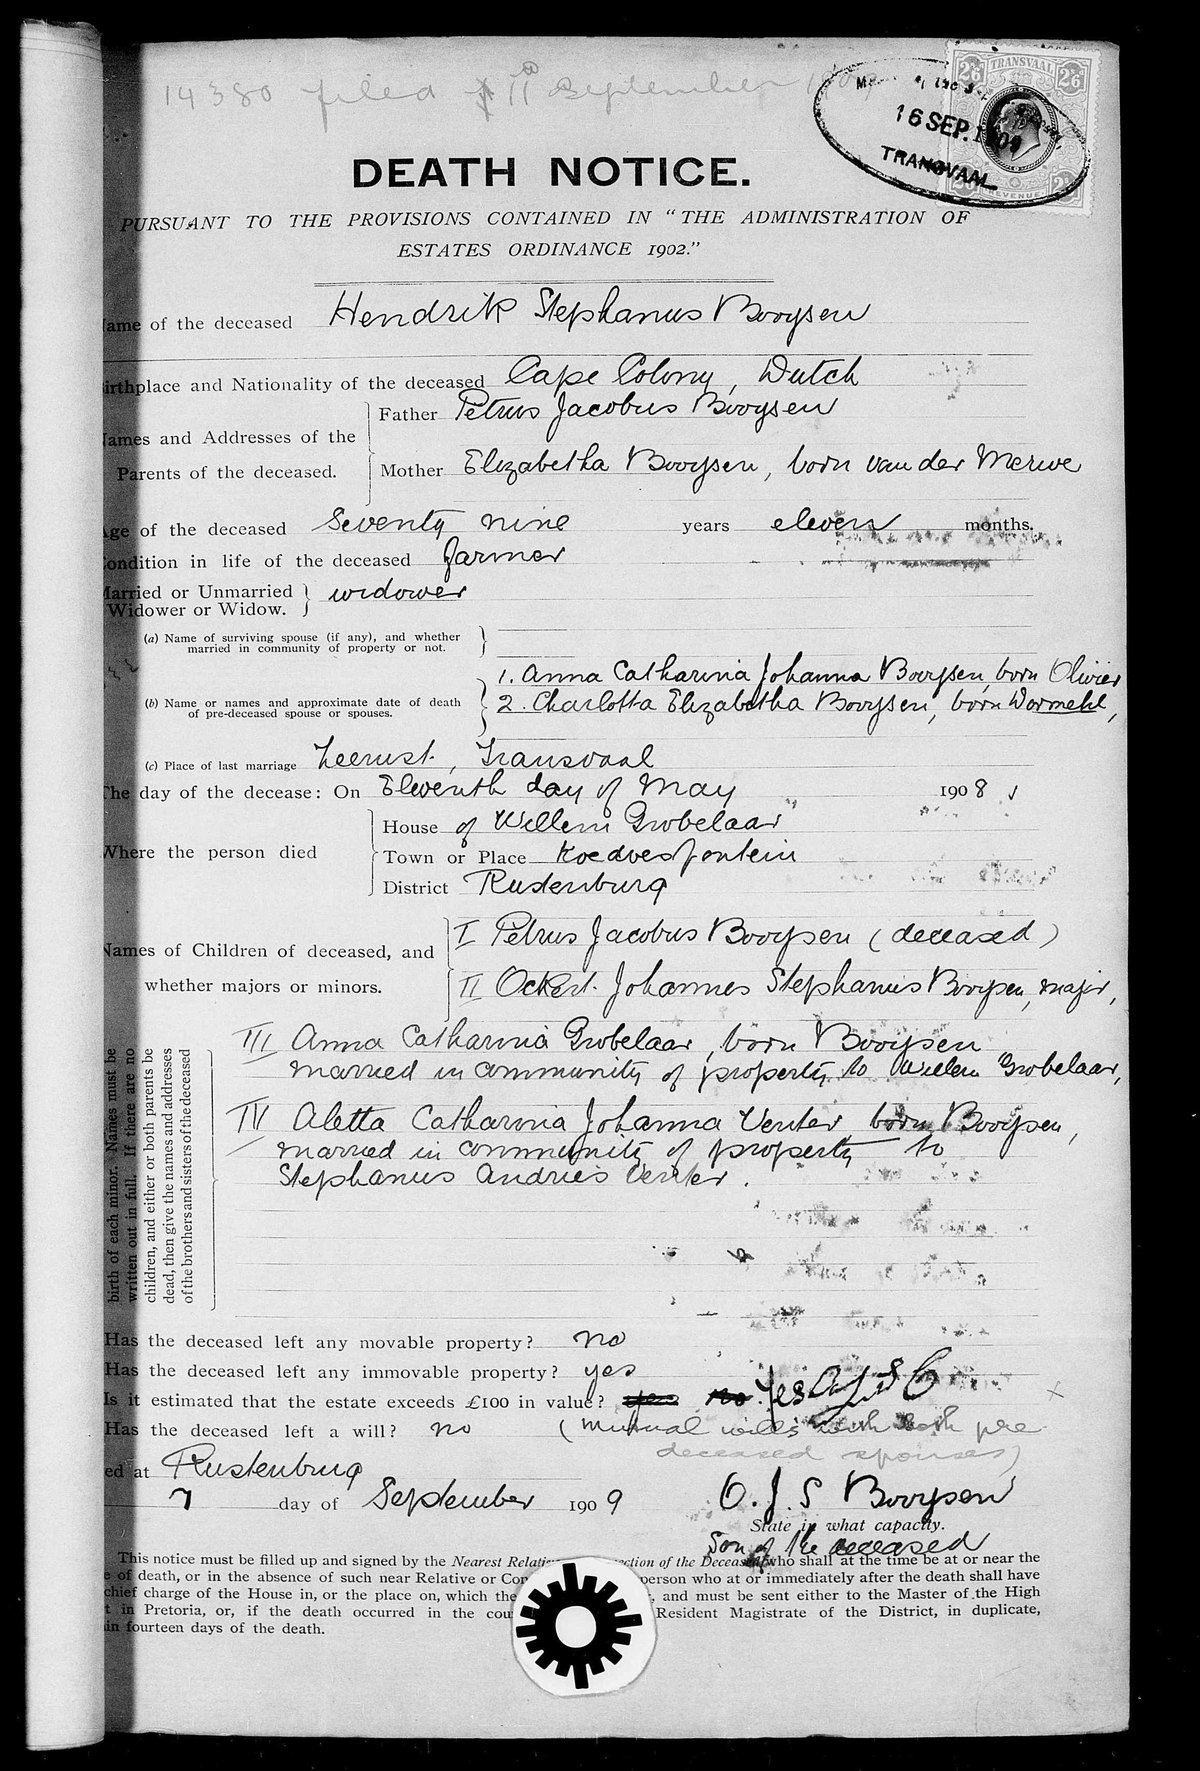 14380 filed 17 September 1909
16 SEP. 1909
TRANSVAAL
TRANSVAAL
2/6 2/6
REVENUE
DEATH NOTICE.
PURSUANT TO THE PROVISIONS CONTAINED IN "THE ADMINISTRATION OF
ESTATES ORDINANCE 1902."
ame of the deceased Hendrik Stephanus Booysen
irthplace and Nationality of the deceased Cape Colony, Dutch
Father Petrus Jacobus Booysen
ames and Addresses of the
Parents of the deceased.
Mother Elizabetha Booysen, born van der Merwe
ge of the deceased Seventy nine years eleven months.
ondition in life of the deceased farmer
arried or Unmarried
Widower or Widow. widower
(a) Name of surviving spouse (if any), and whether
married in community of property or not.
1. Anna Catharina Johanna Booysen, born Olivier
(b) Name or names and approximate date of death
of pre-deceased spouse or spouses.
2. Charlotta Elizabetha Booysen, born Wormehl,
(c) Place of last marriage Zeerust, Transvaal
The day of the decease: On Eleventh day of May 1908
House of Willem Grobelaar
Where the person died
Town or Place Koedoesfontein
District Rustenburg
I Petrus Jacobus Booysen (deceased)
Names of Children of deceased, and
whether majors or minors.
II Ockert Johannes Stephanus Booysen, major,
III Anna Catharina Grobelaar, born Booysen
married in community of property to Willem Grobelaar,
IV Aletta Catharina Johanna Venter born Booysen,
married in community of property to
Stephanus Andries Venter.
birth of each minor. Names must be
written out in full. If there are no
children, and either or both parents be
dead, then give the names and addresses
of the brothers and sisters of the deceased
Has the deceased left any movable property? no
Has the deceased left any immovable property? yes
Is it estimated that the estate exceeds £100 in value? yes no yes OJSB
Has the deceased left a will? no (mutual wills with both pre
deceased spouses)
ed at Rustenburg
7 day of September 1909
O. J. S Booysen
State in what capacity.
Son of the deceased
This notice must be filled up and signed by the Nearest Relati ection of the Deceased, who shall at the time be at or near the
e of death, or in the absence of such near Relative or Con person who at or immediately after the death shall have
chief charge of the House in, or the place on, which the , and must be sent either to the Master of the High
t in Pretoria, or, if the death occurred in the cou Resident Magistrate of the District, in duplicate,
in fourteen days of the death.